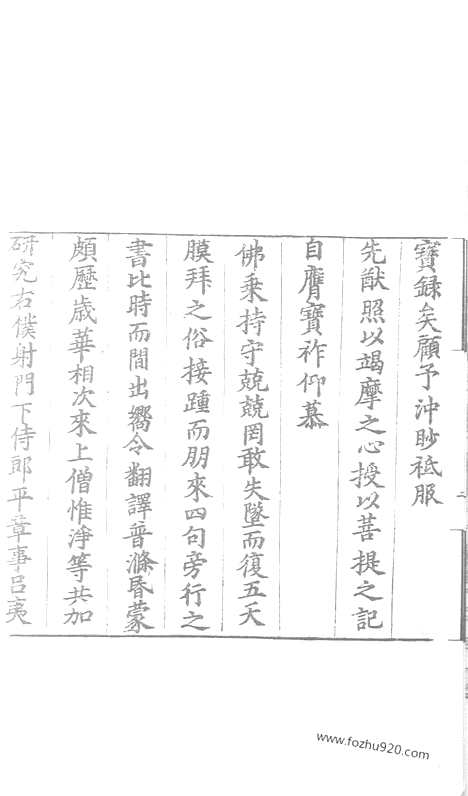 寶録矣顧予沖眇祗服
先猷照以竭摩之心授以菩提之記
自膺寶祚仰慕
佛乗持守兢兢罔敢失墜而復五天
膜拜之俗接踵而朋來四句旁行之
書比時而間出嚮令翻譯普滌昏蒙
頗歷歳華相次來上僧惟淨等共加
研究右僕射門下侍郎平章事吕夷
二
www.fozhu920.com